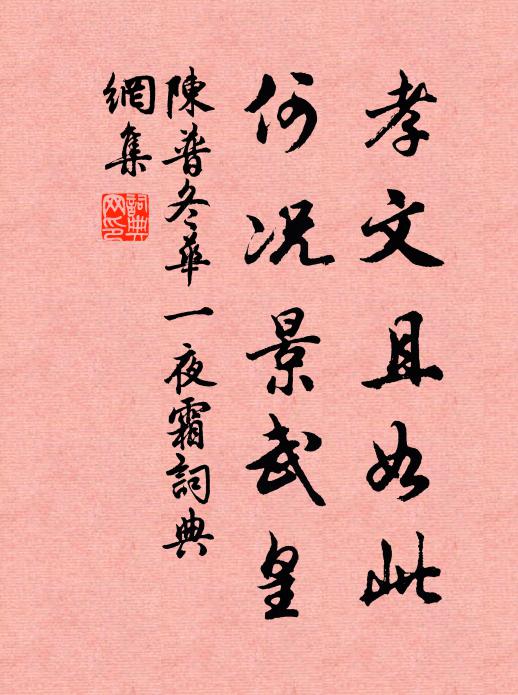 孝文且如此
何况景武皇
陳普冬華一夜霜詞典
網集
詞典網印